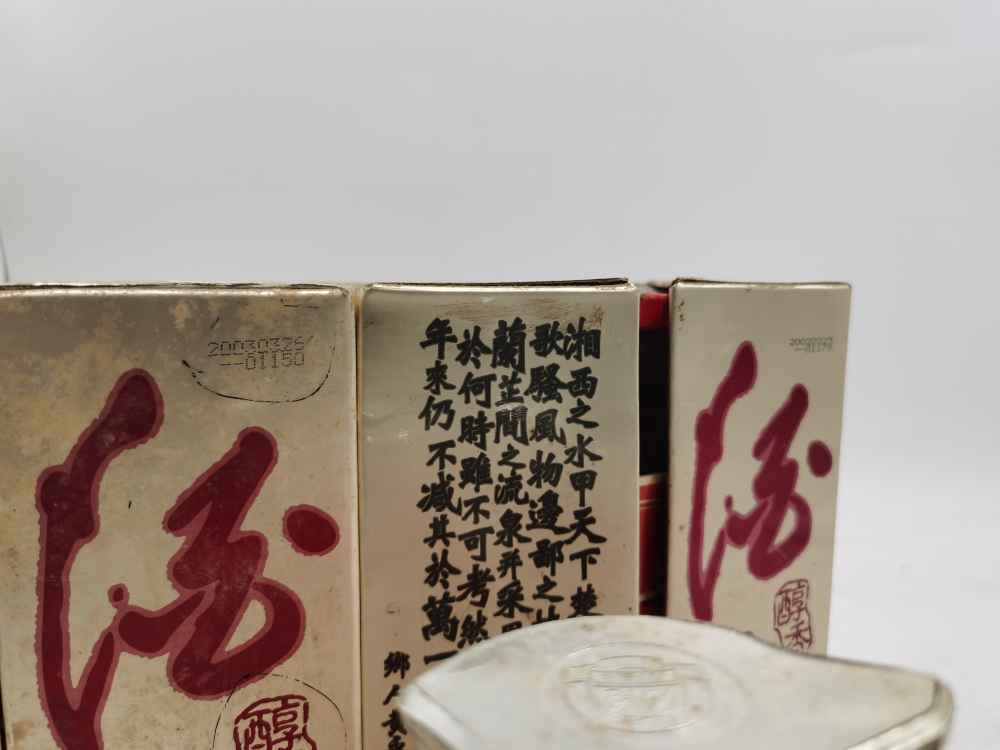 20030326
--01150
酒
醇
湘西之水甲天下楚
歌騷風物邊鄙之
蘭芷間之流泉并采
於何時雖不可考然
年來仍不减其於萬一
鄉人
酒
醇香